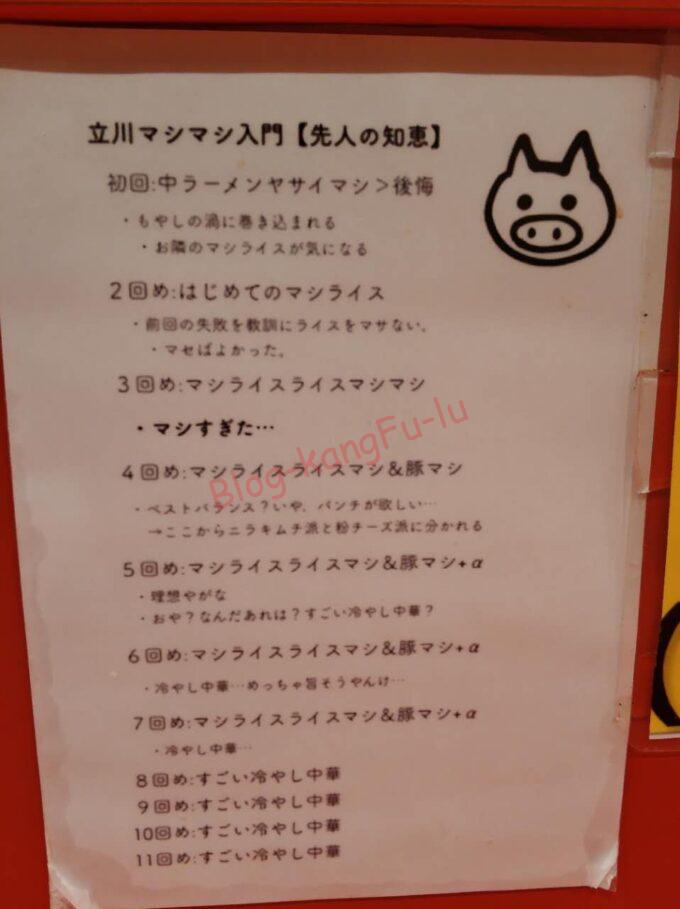 立川マシマシ入門【先人の知恵】
初回:中ラーメンヤサイマシ>後悔
・もやしの渦に巻き込まれる
・お隣のマシライスが気になる
2回め:はじめてのマシライス
・前回の失敗を教訓にライスをマサない。
・マセばよかった。
3回め:マシライスライスマシマシ
・マシすぎた…
4回め:マシライスライスマシ&豚マシ
・ベストバランス?いや、パンチが欲しい…
→ここからニラキムチ派と粉チーズ派に分かれる
5回め:マシライスライスマシ&豚マシ+α
・理想やがな
・おや?なんだあれは?すごい冷やし中華?
6回め:マシライスライスマシ&豚マシ+α
・冷やし中華…めっちゃ旨そうやんけ…
7回め:マシライスライスマシ&豚マシ+α
・冷やし中華…
8回め:すごい冷やし中華
9回め:すごい冷やし中華
10回め:すごい冷やし中華
11回め:すごい冷やし中華
Blog-kangFu-lu